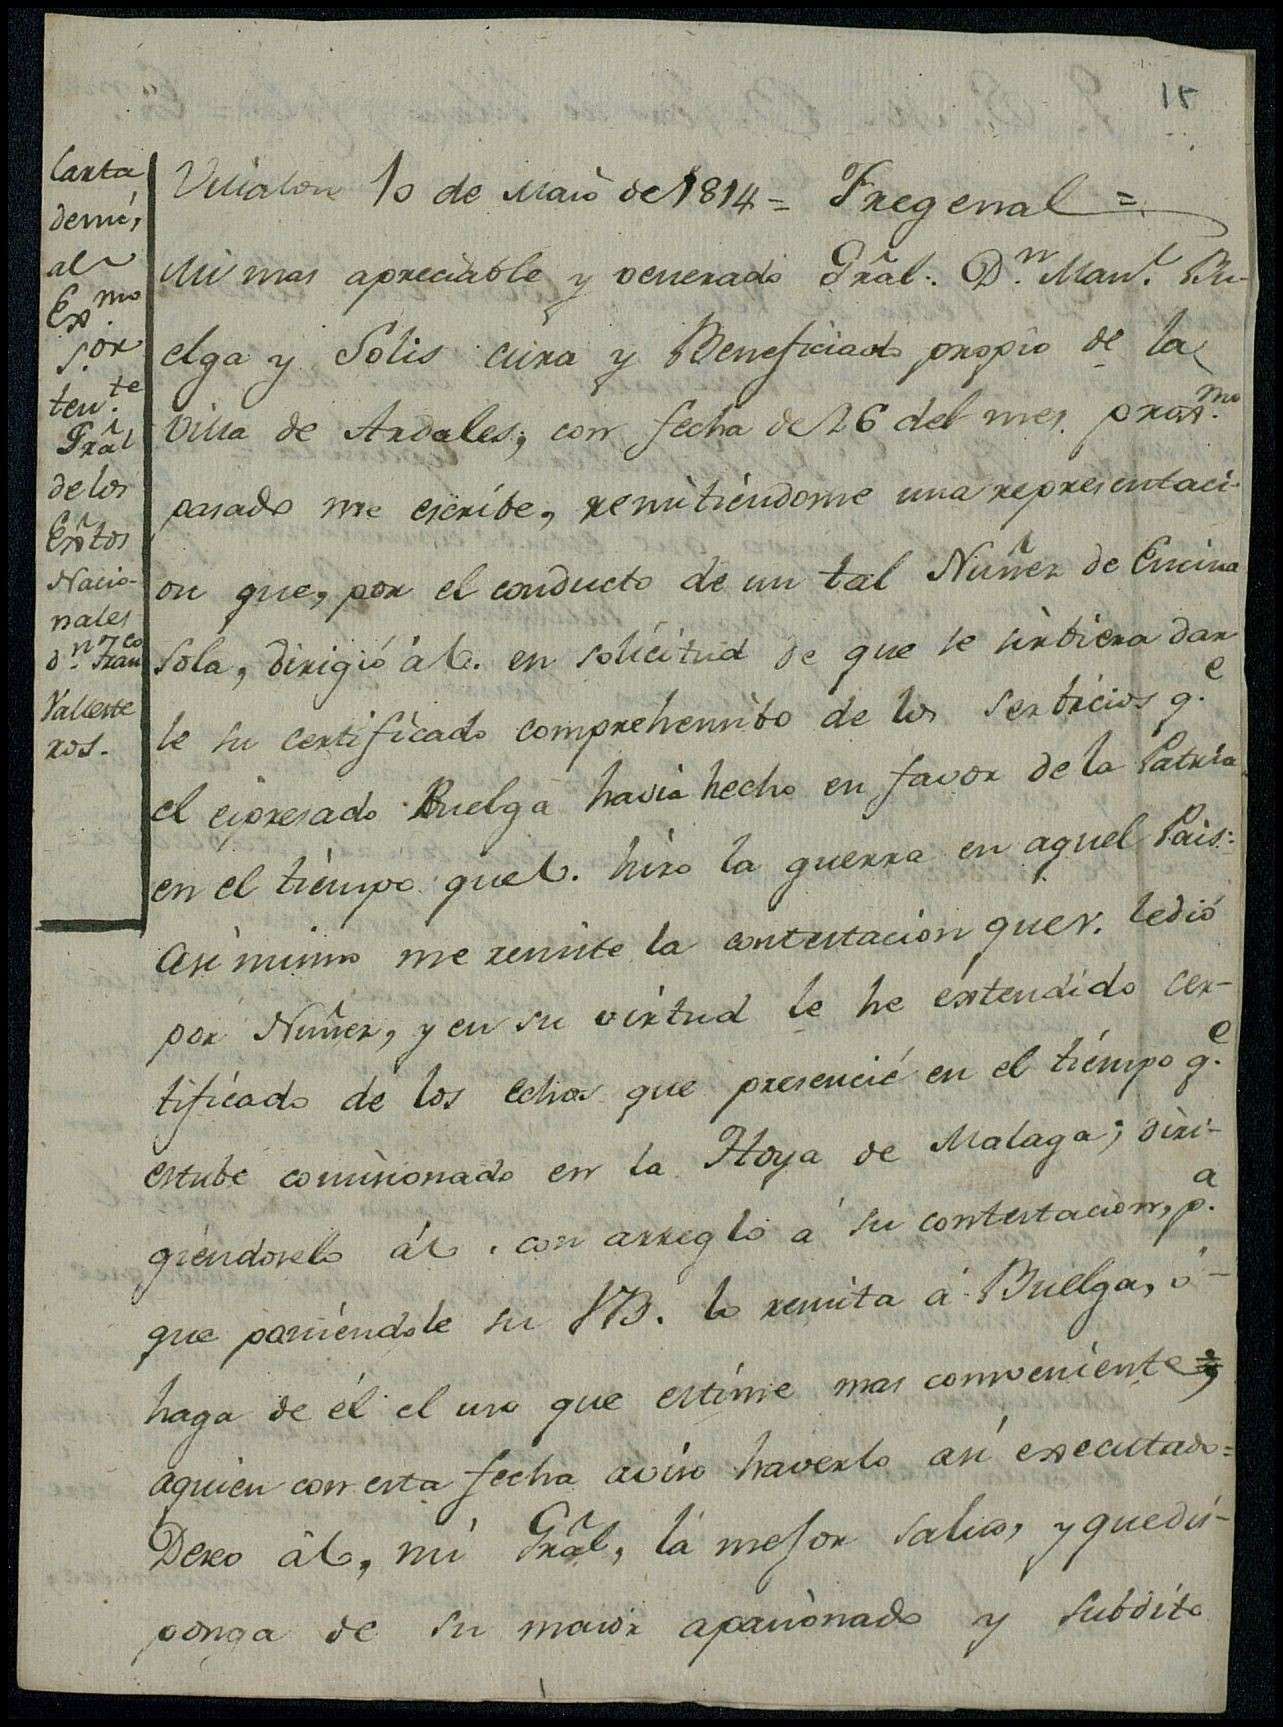 15
Carta
de mi,
al
Exmo
S.or
ten.te
Gral
de los
Extos
Nacio-
nales
d.n Franco
Valleste
ros.
10 de Maio de 1814 = Fregenal =
Mi mas apreciable y venerado Gral: D.n Man.l Bu-
elga y Solis cura y Beneficiado propio de la
Villa de Ardales, con fecha de 26 del mes prox.mo
pasado me escribe, remitiendome una representaci-
on que, por el conducto de un tal Nuñez de Encina
sola, dirigió á V. en solicitud de que se sirbiera dar
le su certificado comprehensibo de los serbicios q.e
el expresado Buelga havia hecho en favor de la Patria
en el tiempo que V. hizo la guerra en aquel Pais:
Asi mismo me remite la contestacion que V. le dió
por Nuñez, y en su virtud le he extendido cer-
tificado de los echos que presencié en el tiempo q.e
estube comisionado en la Hoya de Malaga; diri-
giendoselo á V. con arreglo á su contestacion, p.a
que poniendole su VB. lo remita á Buelga, ó
haga de él el uso que estime mas conveniente,
a quien con esta fecha aviso haverlo asi executado=
Deseo á V, mi Gral, la mejor salud, y que dis-
ponga de su maior apasionado y subdito